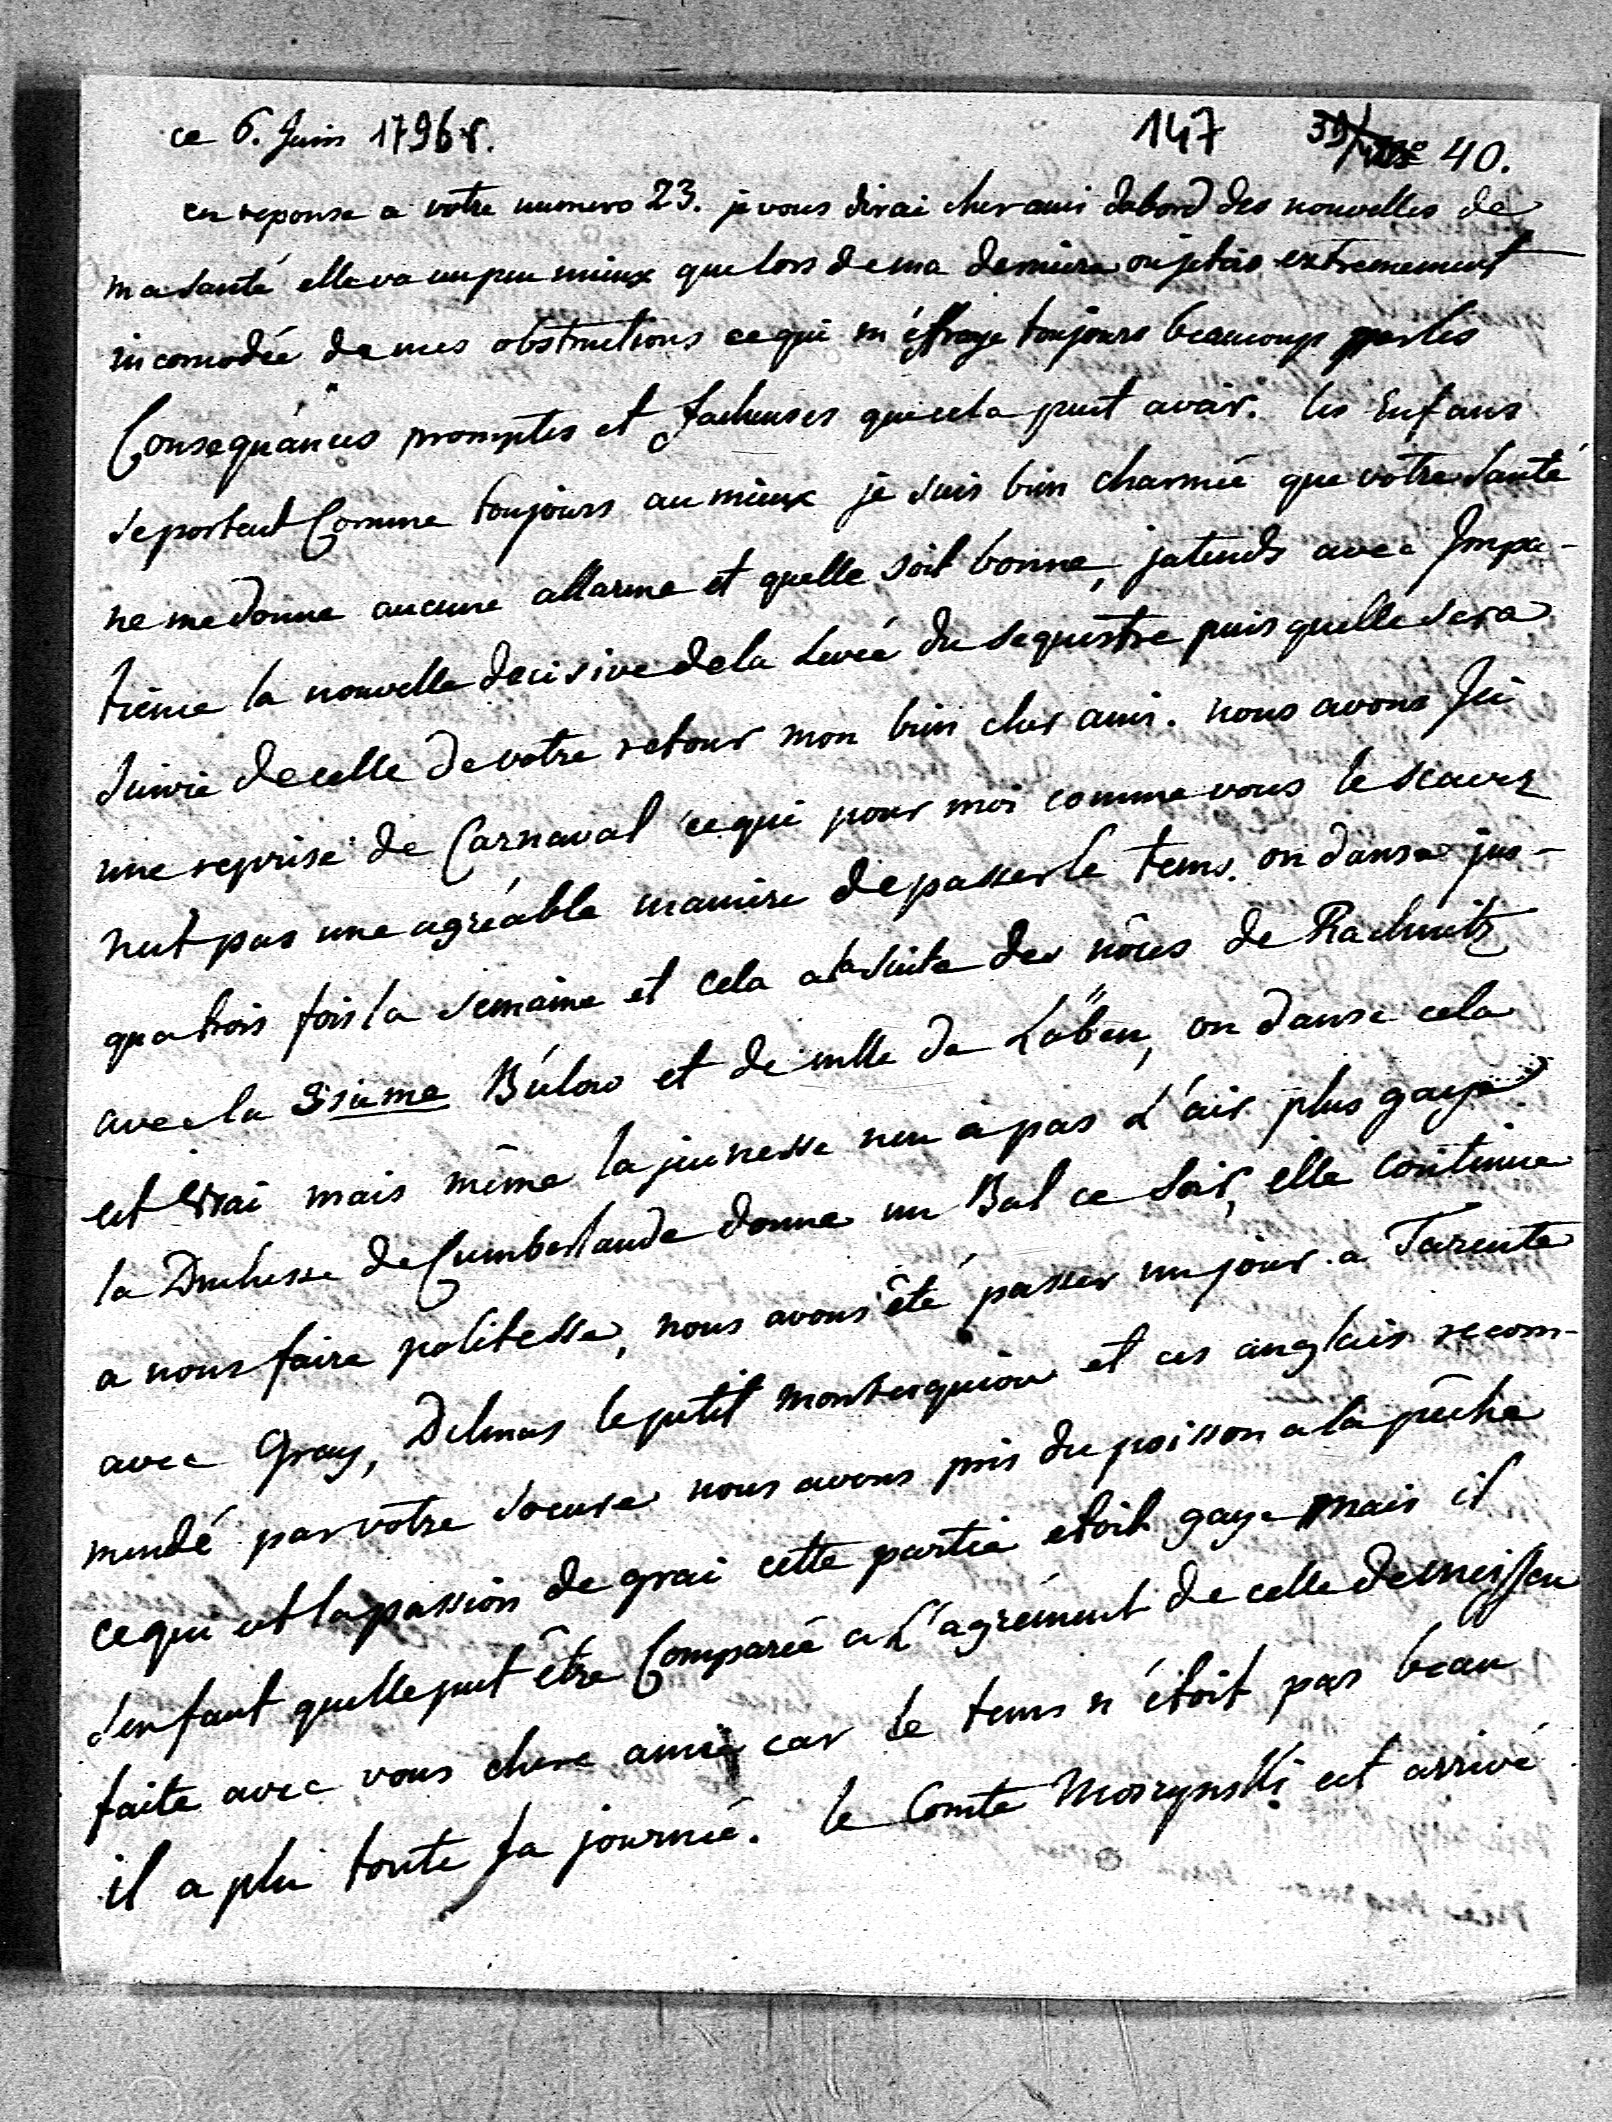 ce 6. Juin 1796 r.
147 39/ No 40.
en reponse a votre numero 23. je vous dirai cher ami dabord des nouvelles de
ma santé elle va un peu mieux que lors de ma derniere ou jetais extremement
incomodée de mes obstructions ce qui m'éffraye toujours beaucoup par les
Consequánces promptes et facheuses que cela peut avair. les Enfans
se portent Comme toujours au mieux je suis bien charmée que votre santé
ne me donne aucune allarme et quelle soit bonne, jatends avec Impa-
tience la nouvelle decisive de la Levée du sequestre puis quelle sera
suivie de celle de votre retour mon bien cher ami. nous avons Ici
une reprise de Carnaval ce qui pour moi comme vous le scavez
nest pas une agréable maniere de passer le tems. on danse jus-
qua trois fois la semaine et cela a la suite des nôces de Racknitz
avec la 3sieme Bülow et de mlle de Löben, on danse cela
est vrai mais même la jeunesse nen a pas L'air plus gaye
la Duchesse de Cumberlande donne un Bal ce soir, elle continue
a nous faire politesse, nous avons été passer un jour a Tarente
avec Gray, Delmas le petit montesquiou et ces anglais recom-
mendé par votre soeure nous avons pris du poisson a la pêche
ce qui est la passion de grai cette partie etoit gaye mais il
sen faut quelle put être Comparée a L'agrément de celle de meissen
faite avec vous chere ami car le tems n'étoit pas beau
il a plu toute la journée. le Comte Moszynski est arrivé